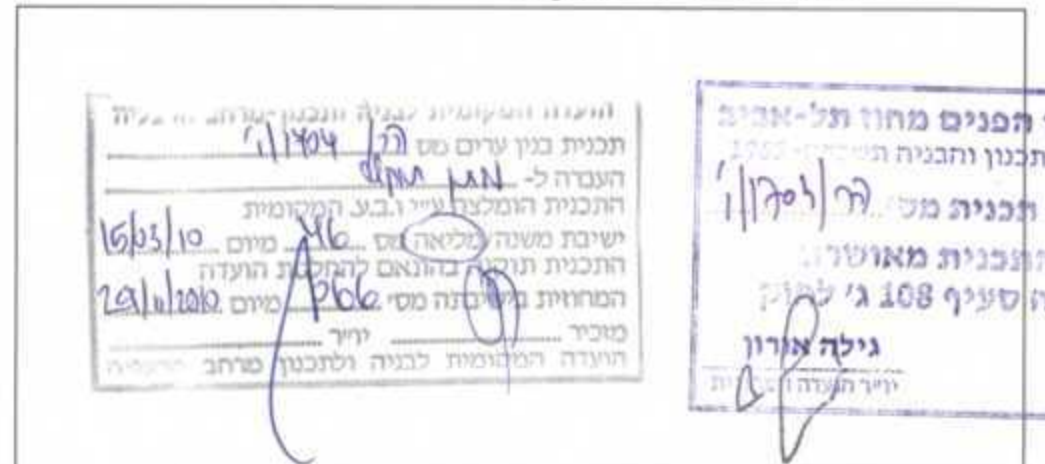 הועדה המקומית לבניה ותכנון-מרחב הרצליה
תכנית בנין ערים מס הר/ 1704/ו'
העברה ל- מתן תוקף
התכנית הומלצה ע״י ו.ב.ע. המקומית
ישיבת משנה/מליאה מס 46 מיום 15/03/10
התכנית תוקנה בהתאם להחלטת הועדה
המחוזית בישיבתה מסי 266 מיום 29/11/2010
מזכיר יו״ר
הועדה המקומית לבניה ולתכנון מרחב הרצליה
הפנים מחוז תל-אביב
תכנון והבניה 1965
תכנית מס' הר/1704/ו'
התכנית מאושרת
סעיף 108 ג' לחוק
גילה אורון
יו״ר הועדה